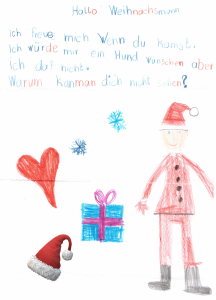 Hallo Weihnachsmann
ich freue mich wenn du komst.
Ich würde mir ein Hund wünschen aber
Ich daf nicht.
Warum kanman dich nicht sehen?